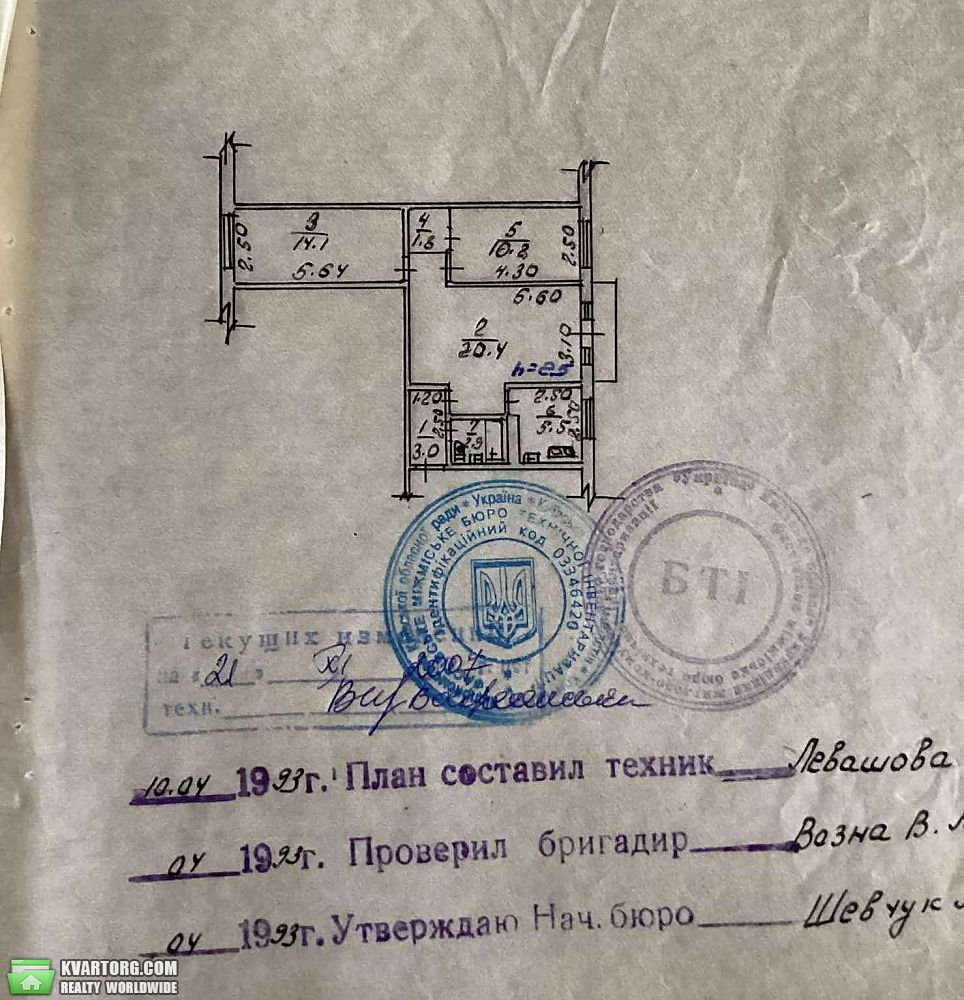 3
14.1
5.64
2.50
4
1.8
5
10.8
4.30
2.50
5.60
2
20.4
3.10
h=25
1.20
2.50
1
3.0
7
2.50
6
5.5
2.50
Україна
МІЖМІСЬКЕ БЮРО ТЕХНІЧНОЇ ІНВЕНТАРИЗАЦІЇ
ідентифікаційний код 03346420
обласної ради
БТІ
Текущих
на «21» XI 2007
техн.
10.04 1993г. План составил техник Левашова
04 1993г. Проверил бригадир Возна В.
04 1993г. Утверждаю Нач. бюро Шевчук
KVARTORG.COM
REALTY WORLDWIDE